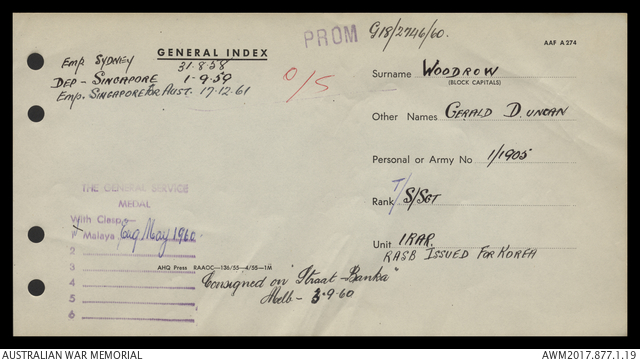 PROM G18/2746/60.
GENERAL INDEX
AAF A 274
Emp. SYDNEY 31.8.58
DEP - SINGAPORE 1-9-59
Emp. SINGAPORE FOR AUST. 17.12.61
O/S
Surname WOODROW
(BLOCK CAPITALS)
Other Names GERALD D.UNCAN
Personal or Army No 1/1905
Rank T/S/SGT
Unit 1 RAR.
RASB ISSUED FOR KOREA
THE GENERAL SERVICE
MEDAL
With Clasp—
1 Malaya May 1960
2
3
4
5
6
AHQ Press RAAOC—136/55—4/55—1M
Consigned on "Straat-Banka"
Melb - 3.9.60
AUSTRALIAN WAR MEMORIAL
AWM2017.877.1.19